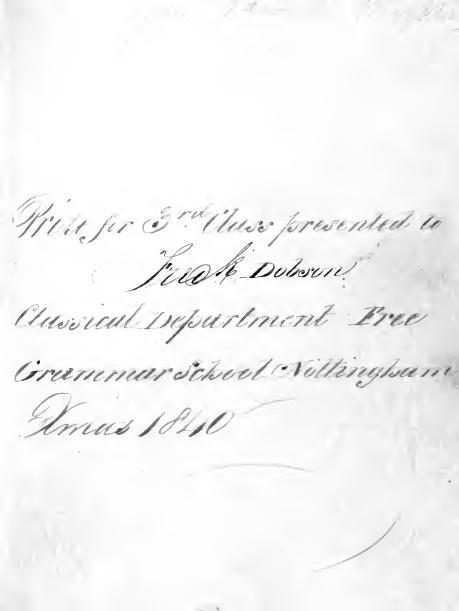 Prize for 3rd Class presented to
Fredk Dobson
Classical Department Free
Grammar School Nottingham
Xmas 1840